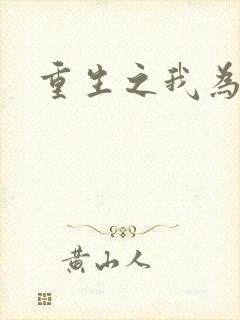 重生之我為
黄山人